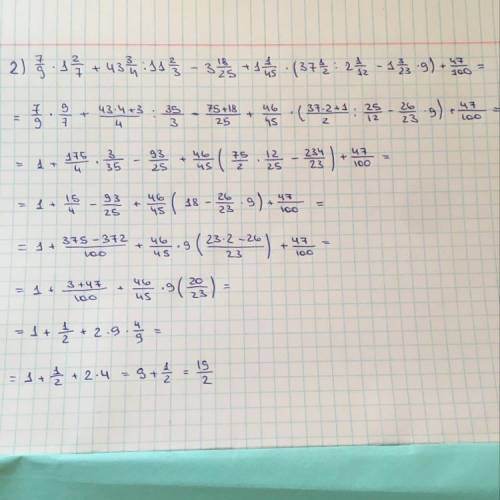 2) 7/9 · 1 2/7 + 43 3/4 : 11 2/3 - 3 18/25 + 1 1/45 · (37 1/2 : 2 1/12 - 1 3/23 · 9) + 47/100 =
= 7/9 · 9/7 + (43·4+3)/4 : 35/3 - (75+18)/25 + 46/45 · ((37·2+1)/2 : 25/12 - 26/23 · 9) + 47/100 =
= 1 + 175/4 · 3/35 - 93/25 + 46/45 (75/2 · 12/25 - 234/23) + 47/100 =
= 1 + 15/4 - 93/25 + 46/45 (18 - 26/23 · 9) + 47/100 =
= 1 + (375-372)/100 + 46/45 · 9 ((23·2-26)/23) + 47/100 =
= 1 + (3+47)/100 + 46/45 · 9 (20/23) =
= 1 + 1/2 + 2 · 9 · 4/9 =
= 1 + 1/2 + 2·4 = 9 + 1/2 = 19/2